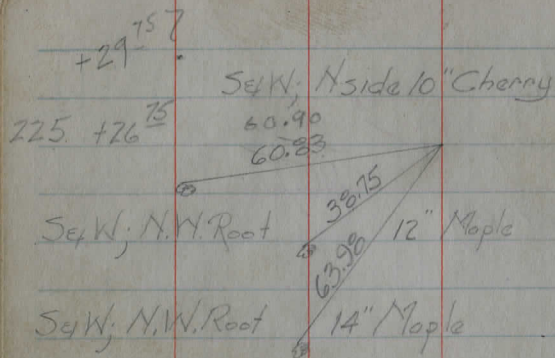 +29 75 ?
S&W; N side 10" Cherry
225 +26 75
60.90
60.83
38.75
S&W; N.W. Root 12" Maple
63.98
S&W; N.W. Root 14" Maple